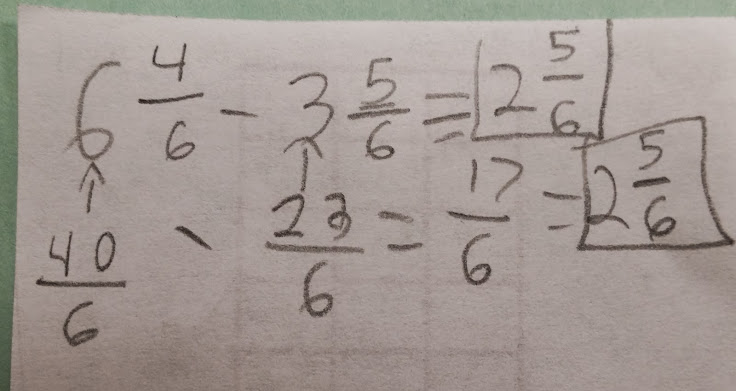 6 4/6 - 3 5/6 = 2 5/6
40/6 - 23/6 = 17/6 = 2 5/6